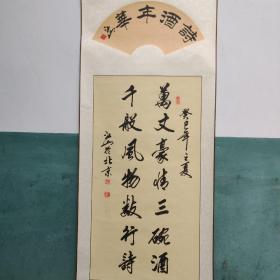 詩酒年華
癸巳年之夏
萬丈豪情三碗酒
千般風物數行詩
於北京